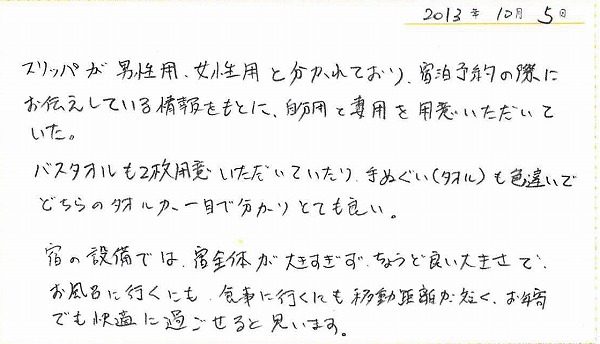 2013年 10月 5日
スリッパが男性用、女性用と分かれており、宿泊予約の際に
お伝えしている情報をもとに、自分用と専用を用意いただいて
いた。
バスタオルも2枚用意いただいていたり、手ぬぐい(タオル)も色違いで
どちらのタオルか、一目で分かりとても良い。
宿の設備では、宿全体が大きすぎず、ちょうど良い大きさで、
お風呂に行くにも、食事に行くにも移動距離が短く、お年寄
でも快適に過ごせると思います。